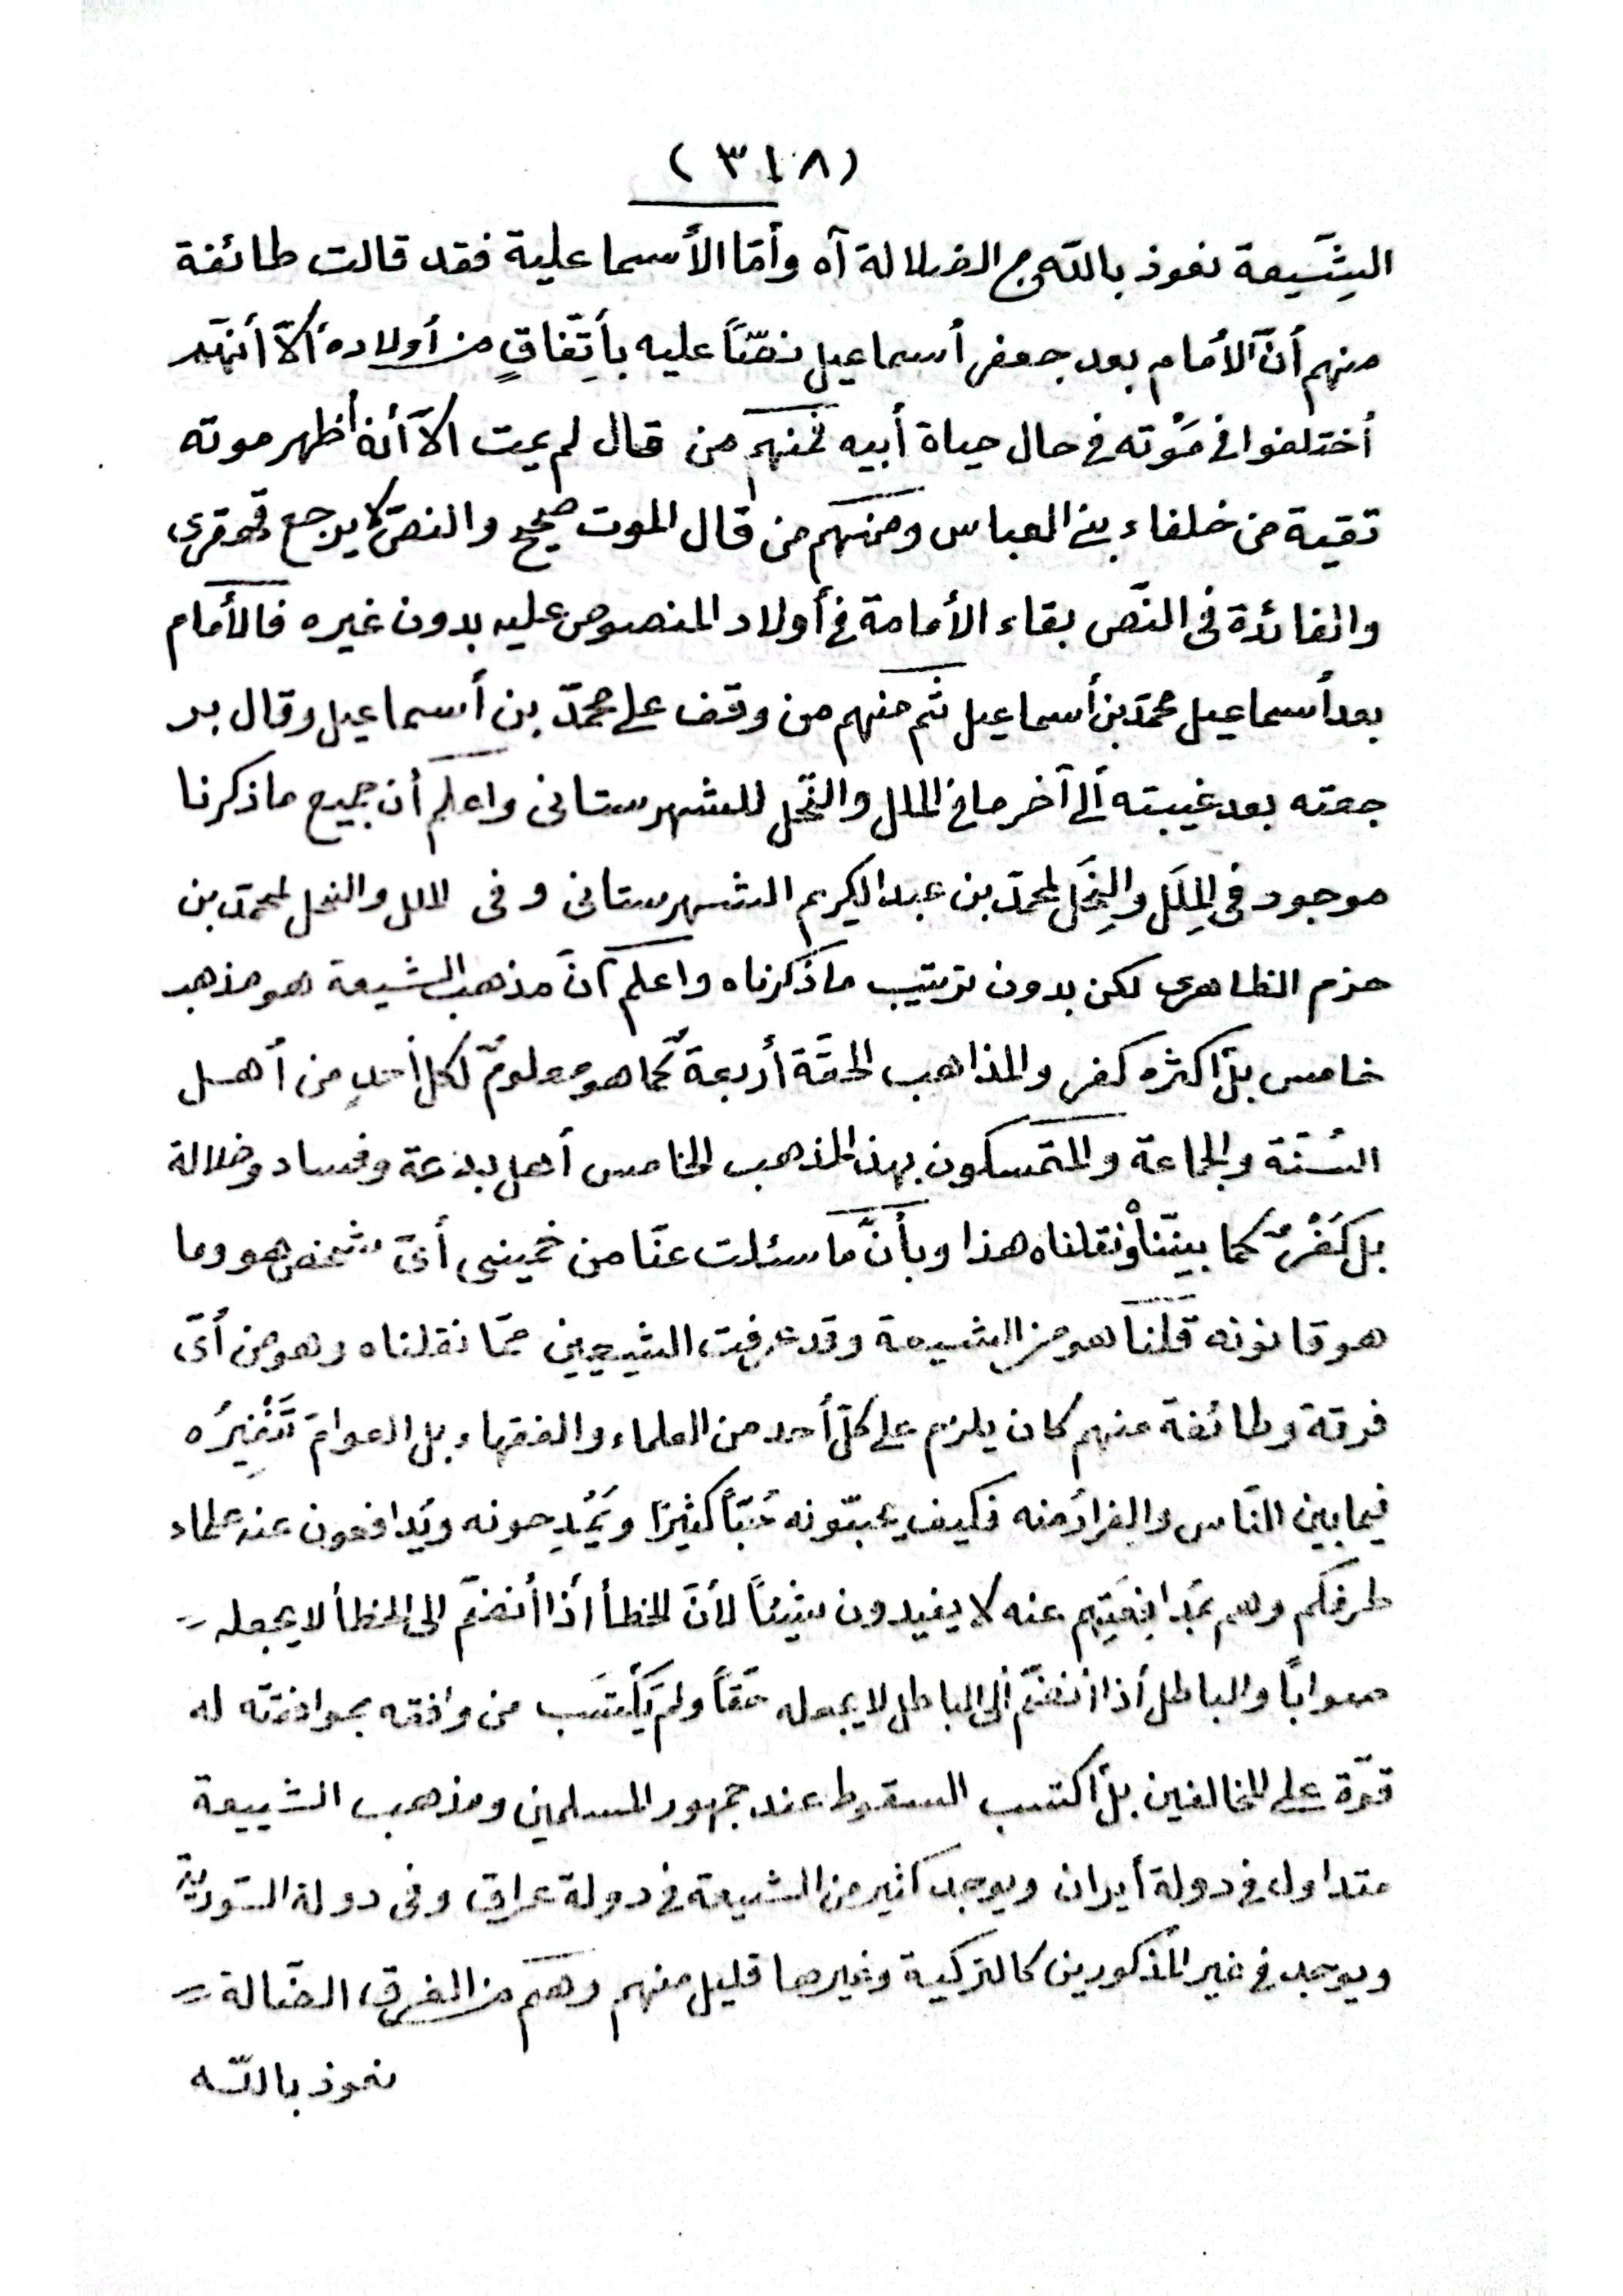 (٣١٨)
الشِّيعة نعوذ باللّه من الضلالة آه وأمّا الأسماعلية فقد قالت طائفة
منهم أنّ الأمام بعد جعفر أسماعيل نصّاً عليه بأتِّفاقٍ من أولاده ألاّ أنّهم
أختلفوا في مَوْته في حال حياة أبيه فمنهم من قال لم يمت الاّ أنه أظهر موته
تقية من خلفاء بني العباس ومنهم من قال الموت صحيح والنصّ لا يرجع قهقرى
والفائدة في النصّ بقاء الأمامة في أولاد المنصوص عليه بدون غيره فالأمام
بعد أسماعيل محمّد بن أسماعيل ثم منهم من وقف على محمّد بن أسماعيل وقال بر
جعته بعد غيبته ألى آخر ما في الملل والنّحل للشهرستانى واعلم أن جميع ماذكرنا
موجود في المِلَل والنِحَل لمحمّد بن عبد الكريم الشهرستانى وفى الملل والنحل لمحمّد بن
حزم الظاهرى لكن بدون ترتيب ماذكرناه واعلم أنّ مذهب الشيعة هو مذهب
خامس بل أكثره كفر والمذاهب الحقّة أربعة كما هو معلومٌ لكل أحدٍ من أهل
السُنّة والجماعة والمتمسكون بهذا المذهب الخامس أهل بدعة وفساد وضلالة
بل كَفْرٌ كما بينّنا ونقلناه هذا وبأنَّ ما سئلت عنّا من خمينى أىّ شخص هو وما
هو قانونه قلنا هو من الشيعة وقد عرفت الشيعيين ممّا نقلناه وهو من أىّ
فرقة وطائفة منهم كان يلزم على كلّ أحد من العلماء والفقهاء بل العوامّ تَنْفِيرُه
فيما بين النّاس والفرارُ منه فكيف يحبّونه حُبّاً كثيرًا ويَمْدِحونه ويُدافعون عنه علماء
طرفكم وهم بمُدافِعَتِهم عنه لا يفيدون شيئاً لأنّ الخطأ أذا أنضمّ الى الخطأ لا يجعله
صواباً والباطل أذا انضمّ ألى الباطل لا يجعله حقّاً ولم يَكْتسَب من وافقه بموافقته له
قوّة على المخالفين بل أكتسب السقوط عند جمهور المسلمين ومذهب الشيعة
متداول في دولة أيران ويوجد كثير من الشيعة في دولة عراق وفى دولة السّورية
ويوجد في غير المذكورين كالتركية وغيرها قليل منهم وهم من الفرق الضّالة
نعوذ باللّه